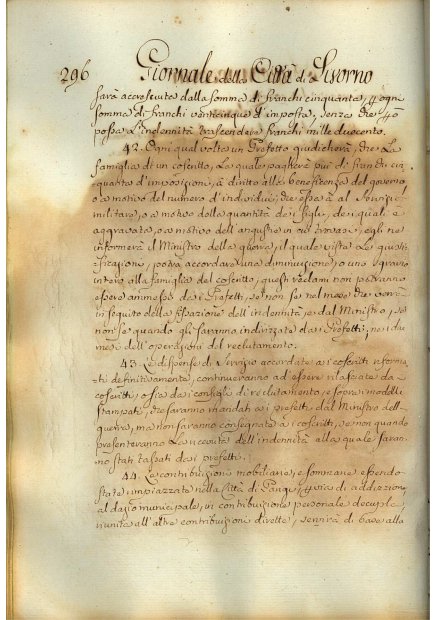 296 Giornale della Città di Livorno
sarà accresciuta dalla somma di franchi cinquanta, p. ogni
somma di franchi venticinque d'imposta, senza che p. ciò
possa l'indennità trascendere franchi mille duecento.
42. Ogni qual volta un Prefetto giudicherà, che la
famiglia di un coscritto, la quale pagherà più di franchi cin
quanta d'imposizioni, à diritto alla beneficenza del governo
o a motivo del numero d'individui, che essa à al servizio
militare, o a motivo della quantità dei figli, dei quali è
aggravata, o a motivo dell'angustie in cui trovasi, egli ne
informerà il Ministro della guerra, il quale vista la giusti
ficazione, potrà accordare una diminuzione, o uno sgravio
intero alla famiglia del coscritto, questi reclami non potranno
essere ammessi dai Prefetti, se non se nel mese che verrà
in seguito della fissazione dell'indennità, e dal Ministro, se
non se quando gli saranno indirizzate dai Prefetti, nei due
mesi dell'operazioni del reclutamento.
43. Le dispense di servizio accordate ai coscritti riforma
ti definitivamente, continueranno ad essere rilasciate da
coscritti, o sia dai consigli di reclutamento, e sopra modelli
stampati, che saranno mandati ai prefetti dal Ministro della
guerra, ma non saranno consegnate ai coscritti, se non quando
presenteranno la ricevuta dell'indennità alla quale saran
no stati tassati dai prefetti.
44. La contribuzione mobiliare, e somuaria essendo
stata rimpiazzata nella Città di Parigi, p. via di addizione
al dazio municipale, in contribuzione personale decuple,
riunita all'altre contribuzioni dirette, servirà di base alla